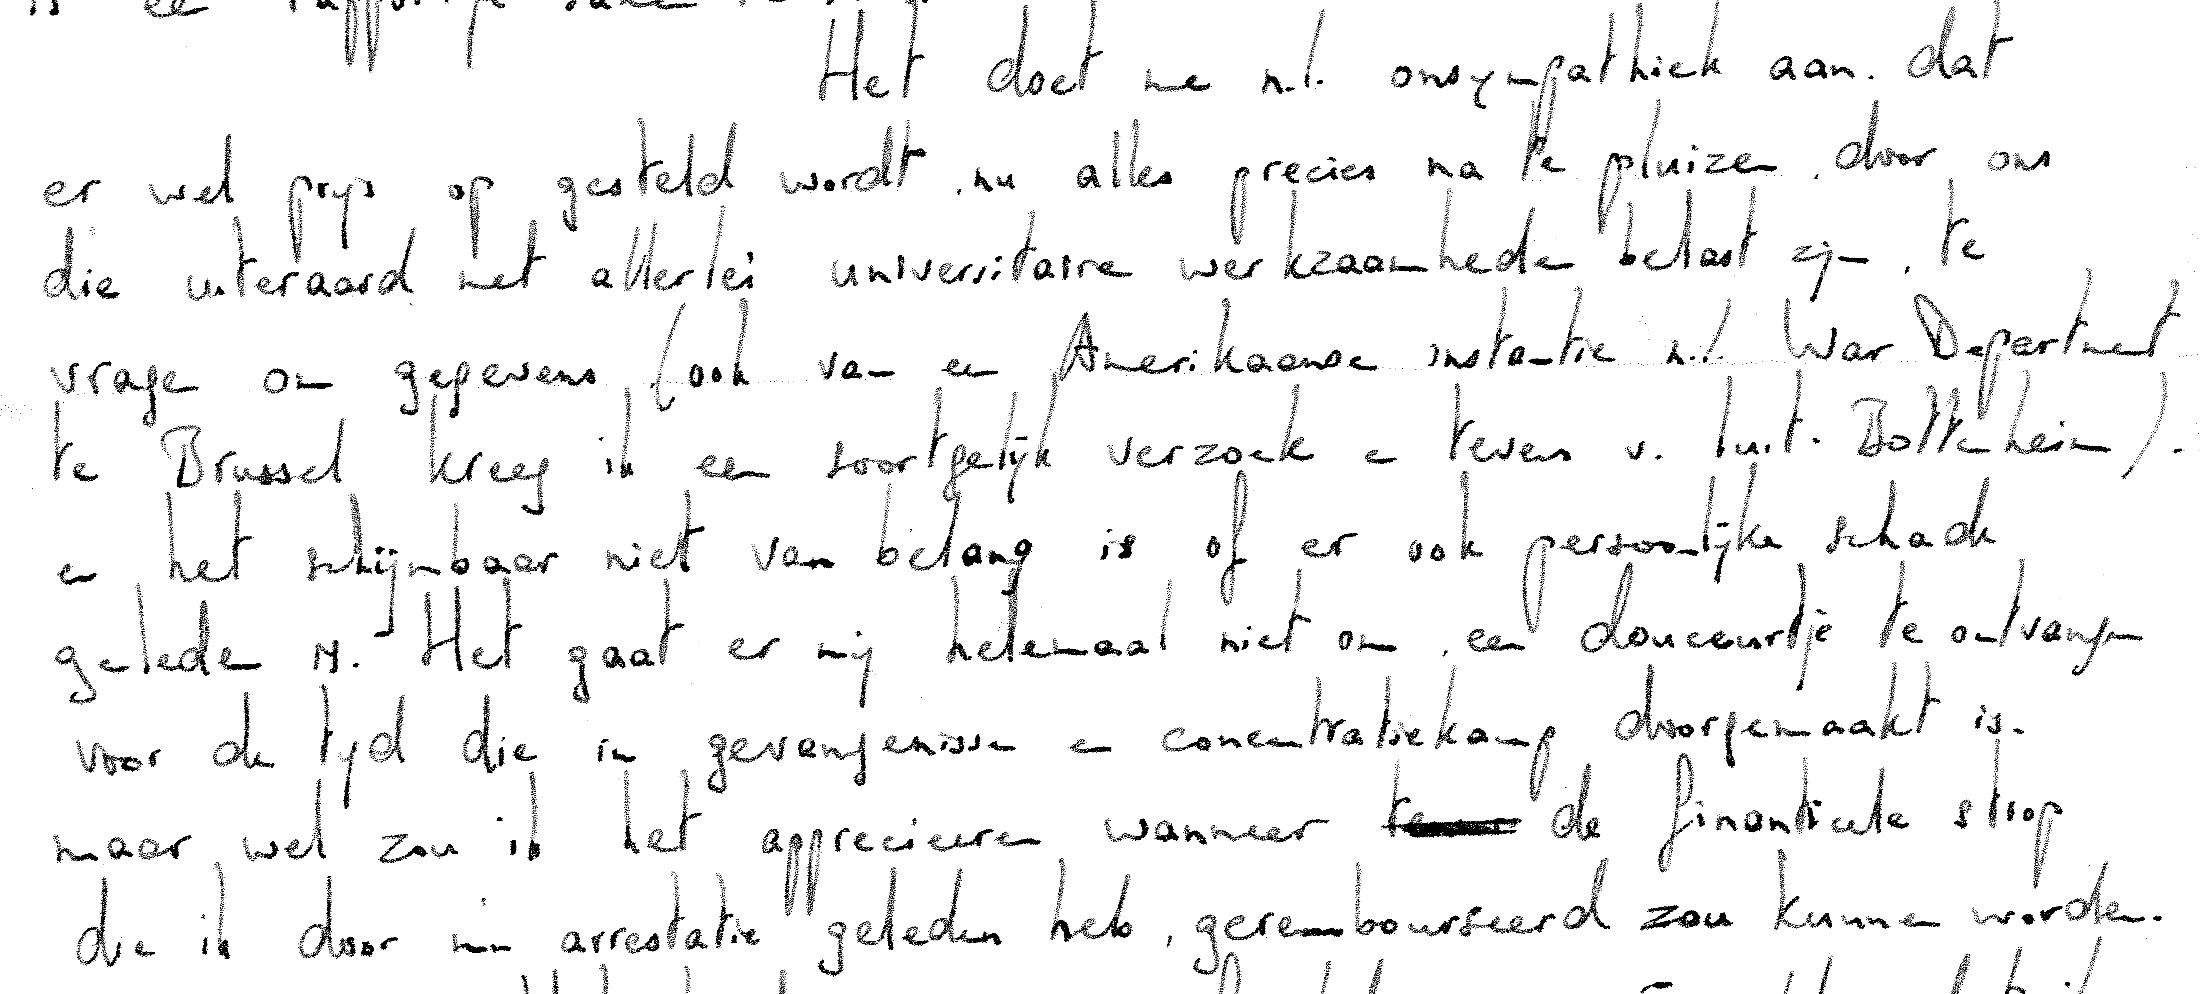 Het doet me n.l. onsympathiek aan. dat
er wel prys op gesteld wordt, nu alles precies na te pluizen, door ons
die uiteraard met allerlei universitaire werkzaamheden belast zijn, te
vragen om gegevens (ook van een Amerikaanse instantie n.l. War Department
te Brussel kreeg ik een soortgelijk verzoek en tevens v. luit. Boltenheim).
en het schijnbaar niet van belang is of er ook persoonlijke schade
geleden is. Het gaat er mij helemaal niet om, een douceurtje te ontvangen
voor de tyd die in gevangenissen en concentratiekamp doorgemaakt is.
maar wel zou ik het apprecieeren wanneer de financieele strop
die ik door mijn arrestatie geleden heb, gerembourseerd zou kunnen worden.